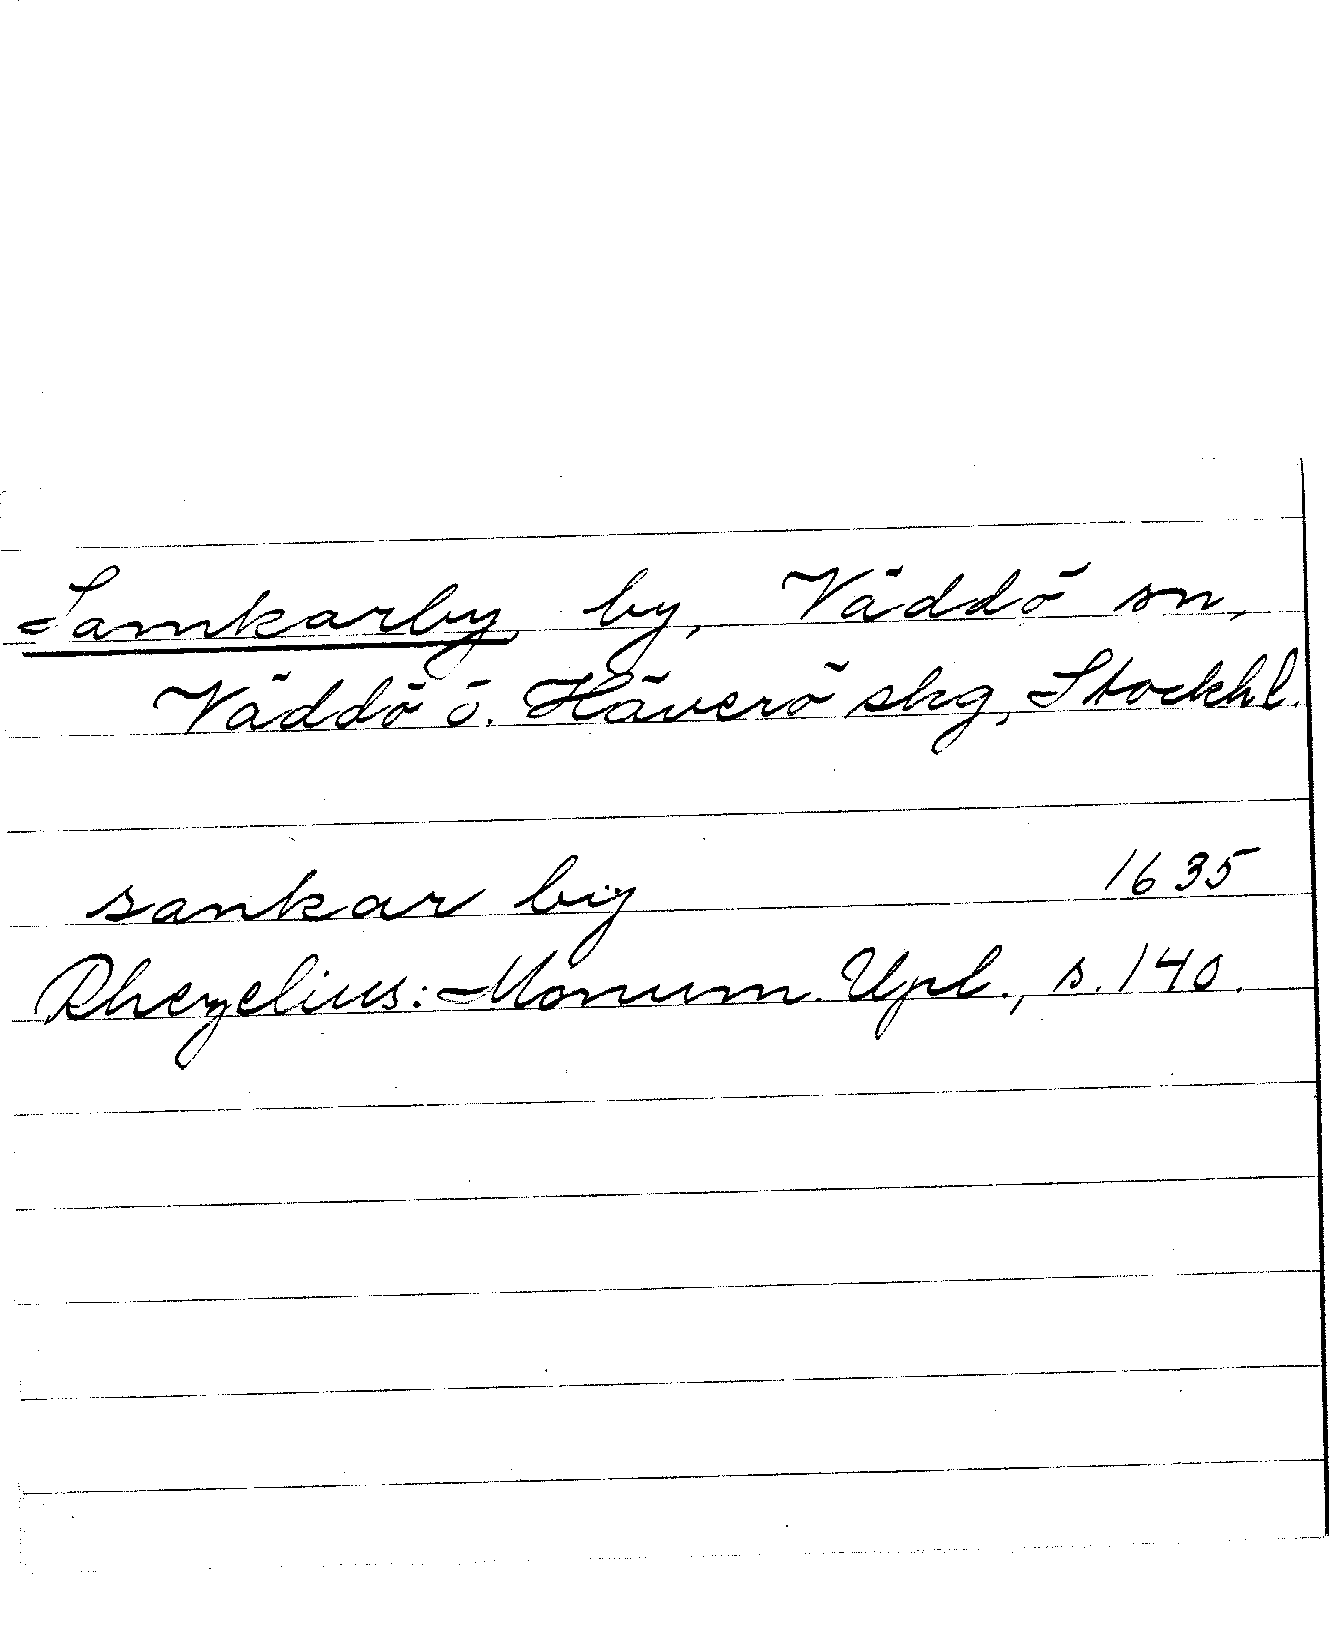 Samkarby, by, Väddö sn,
Väddö o. Häverö skg, Stockh.l.
sankar bÿ 1635
Rhezelius: Monum. Upl., s. 140.